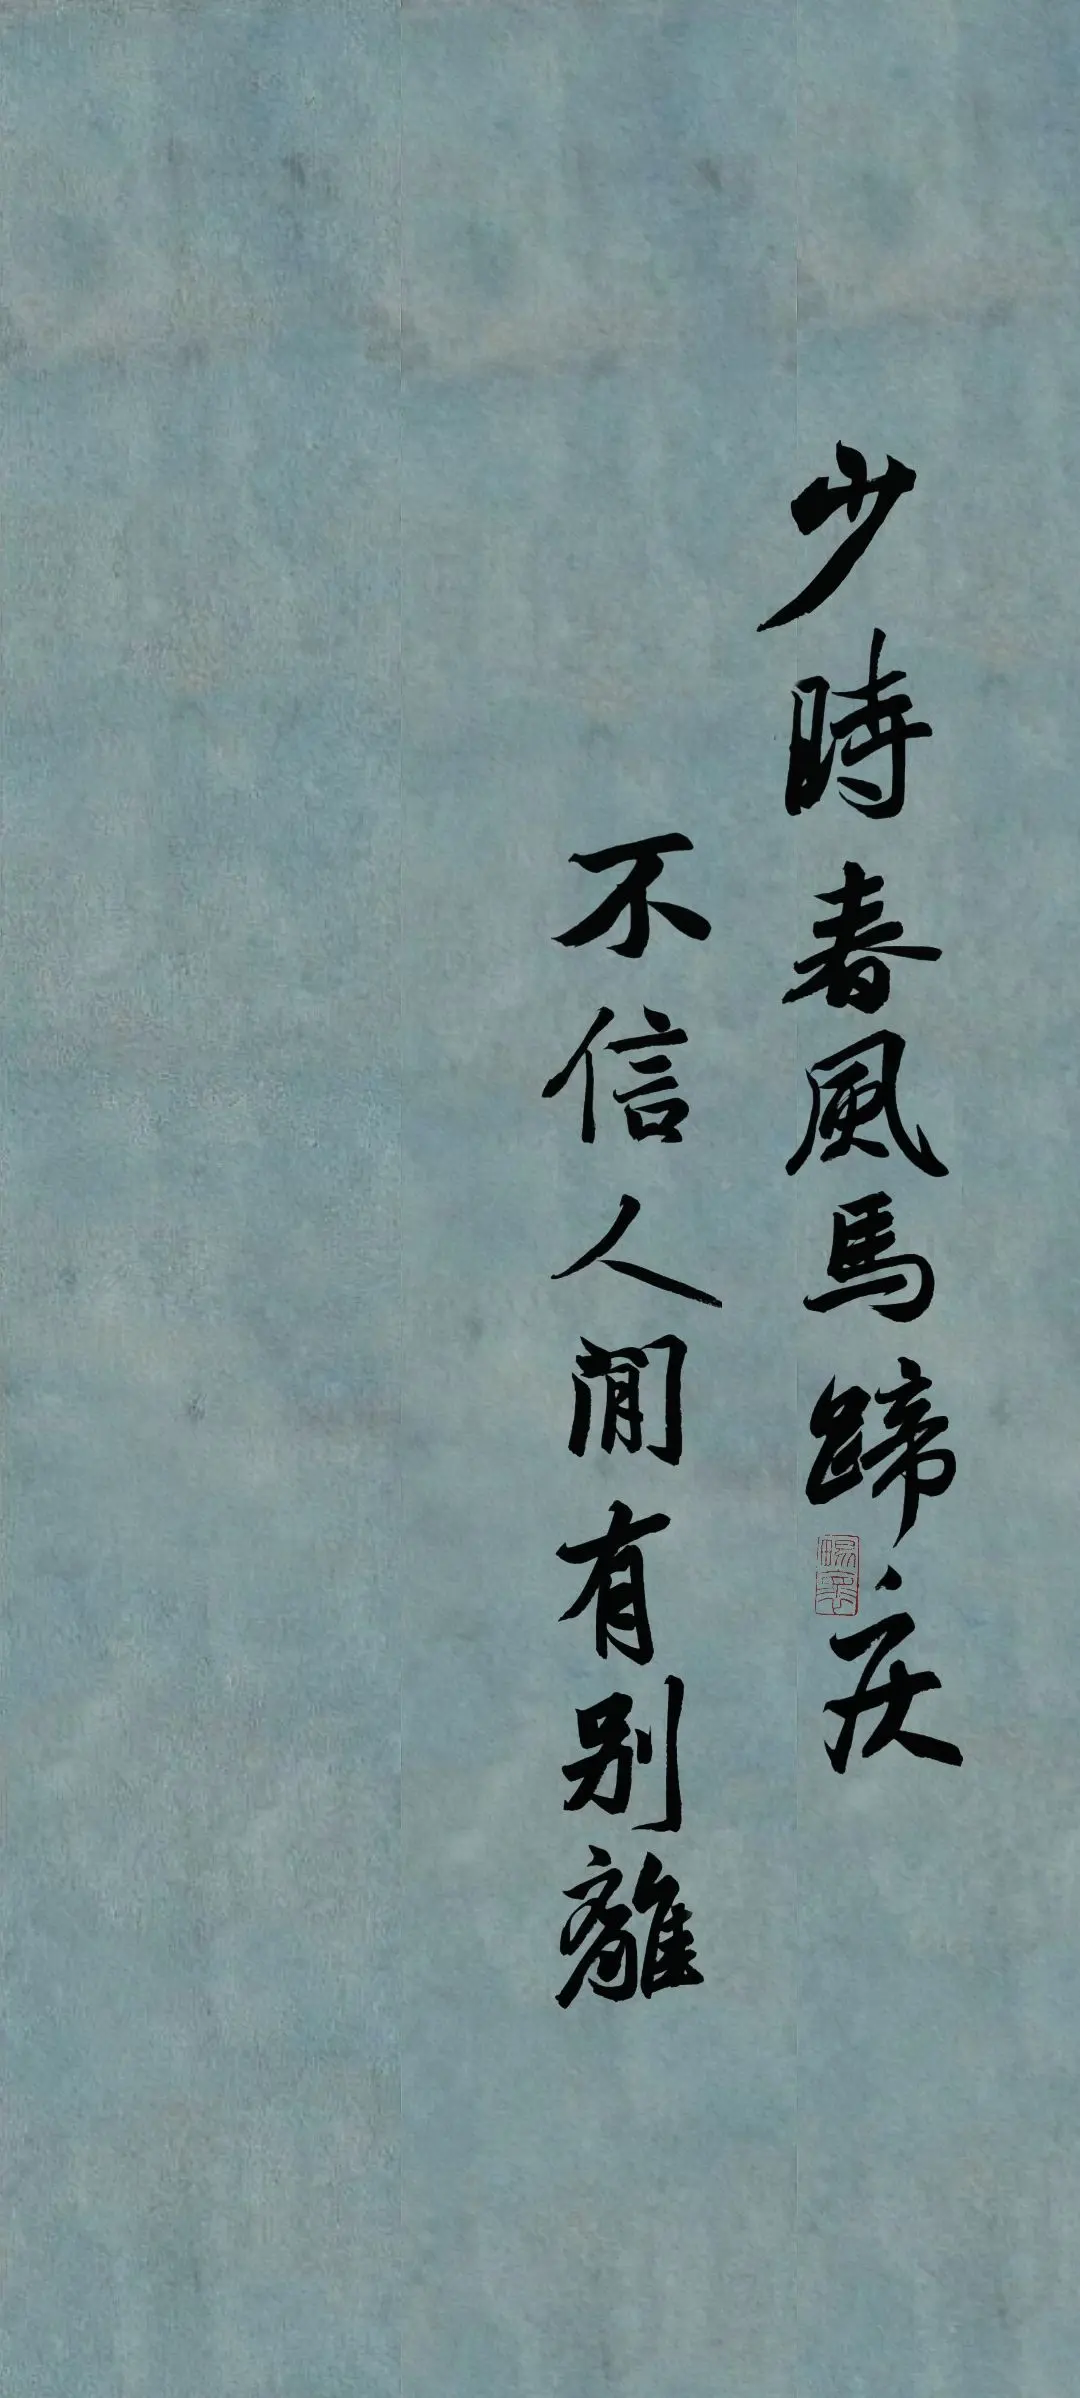 少時春風馬蹄疾
不信人間有別離